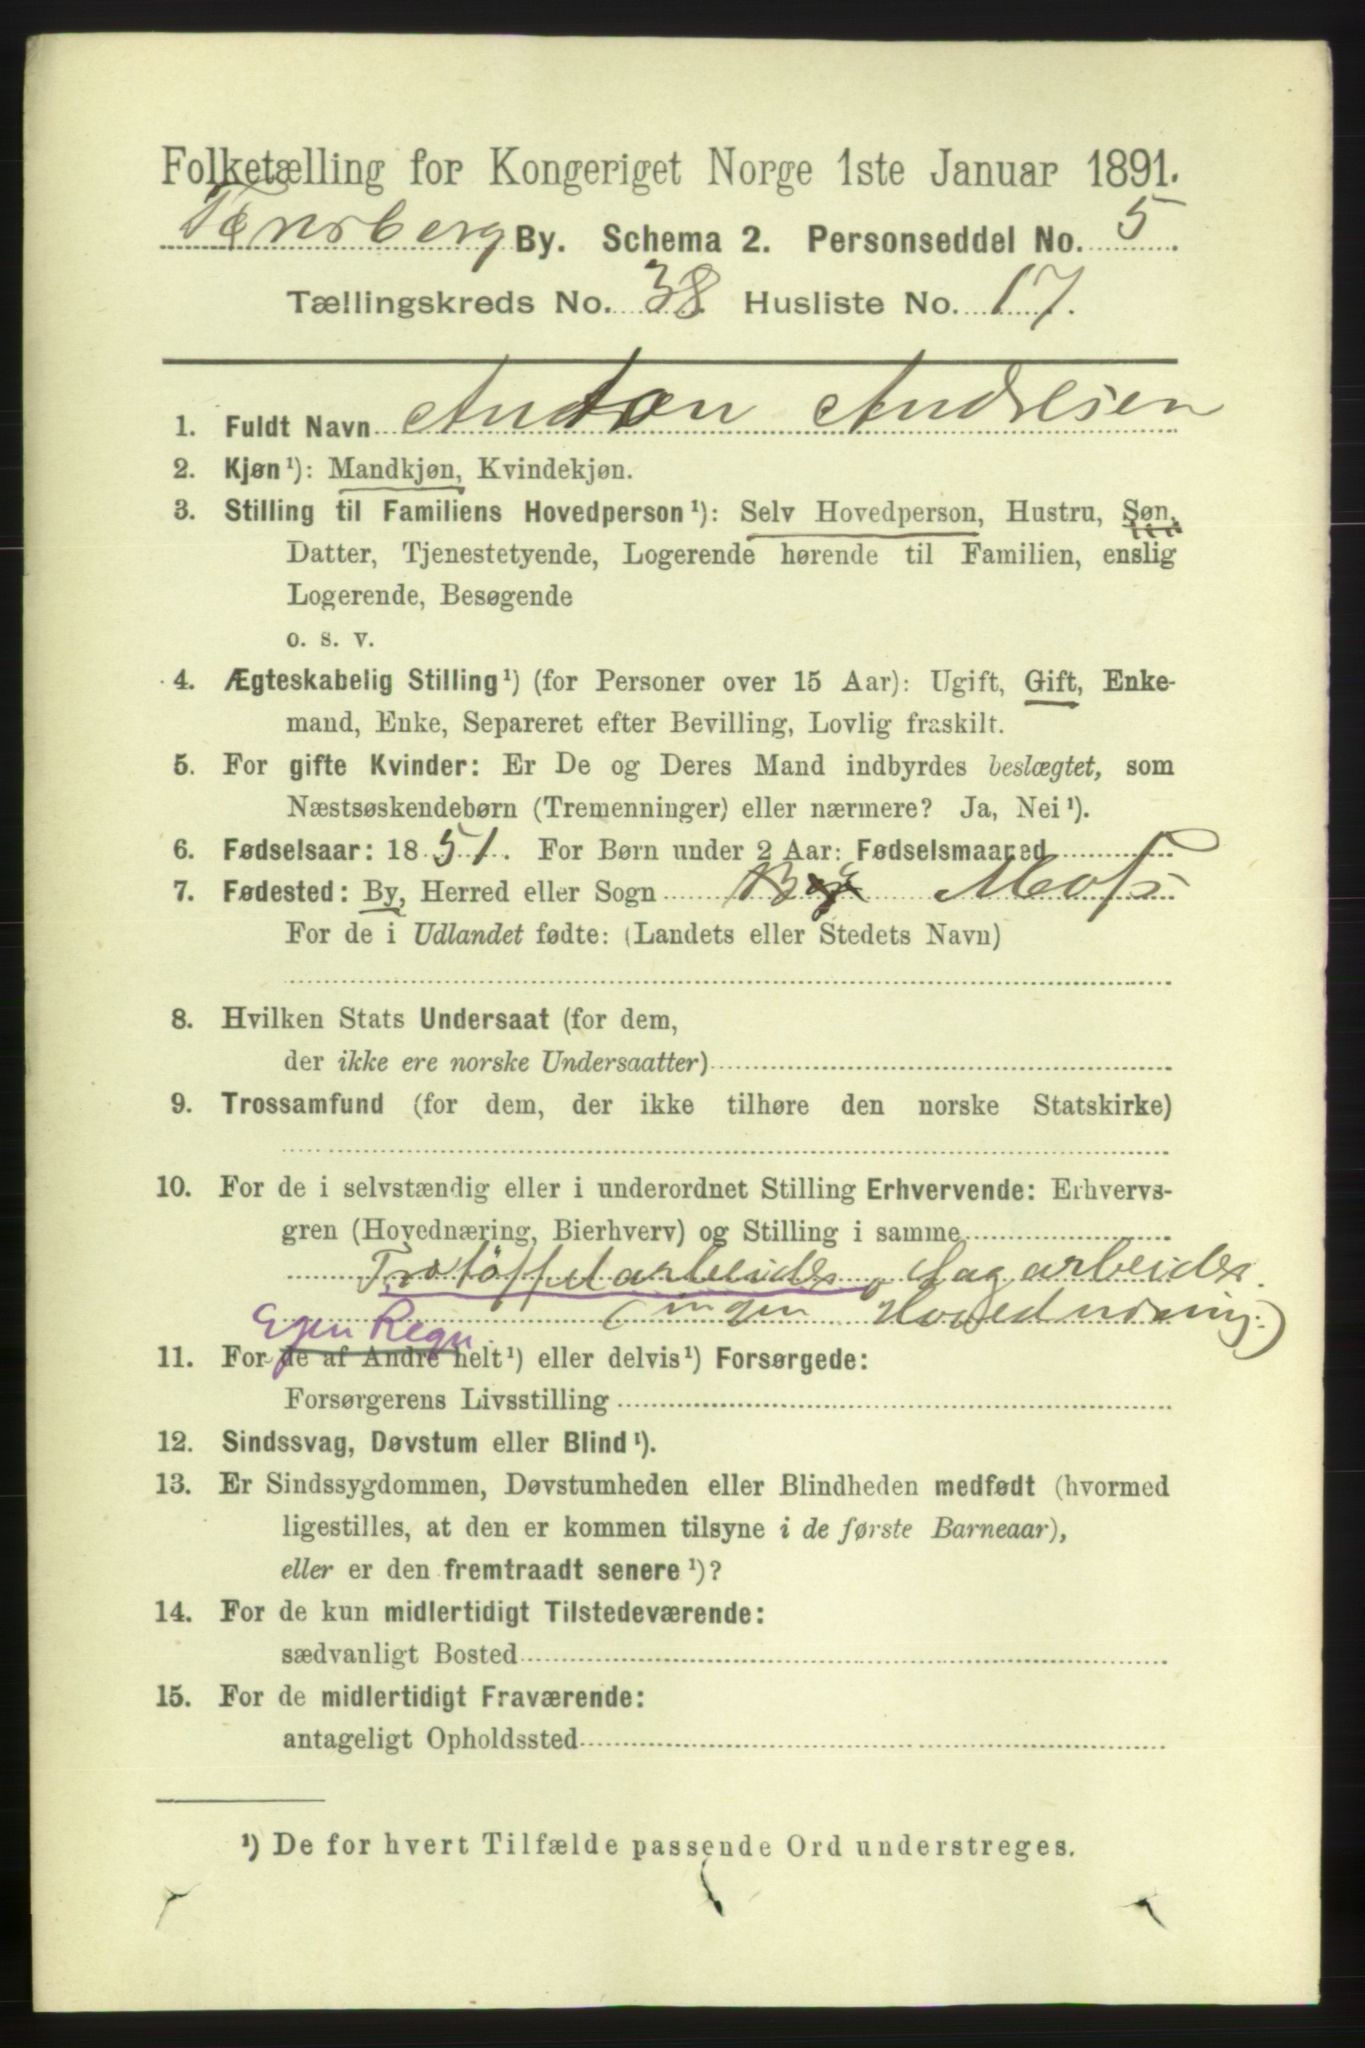 Folketælling for Kongeriget Norge 1ste Januar 1891.
Tønsberg By. Schema 2. Personseddel No. 5
Tællingskreds No. 38 Husliste No. 17.
1. Fuldt Navn Anton Andresen
2. Kjøn¹): Mandkjøn, Kvindekjøn.
3. Stilling til Familiens Hovedperson¹): Selv Hovedperson, Hustru, Søn,
Datter, Tjenestetyende, Logerende hørende til Familien, enslig
Logerende, Besøgende
o. s. v.
4. Ægteskabelig Stilling¹) (for Personer over 15 Aar): Ugift, Gift, Enke-
mand, Enke, Separeret efter Bevilling, Lovlig fraskilt.
5. For gifte Kvinder: Er De og Deres Mand indbyrdes beslægtet, som
Næstsøskendebørn (Tremenninger) eller nærmere? Ja, Nei¹).
6. Fødselsaar: 1851. For Børn under 2 Aar: Fødselsmaaned
7. Fødested: By, Herred eller Sogn Moss
For de i Udlandet fødte: (Landets eller Stedets Navn)
8. Hvilken Stats Undersaat (for dem,
der ikke ere norske Undersaatter)
9. Trossamfund (for dem, der ikke tilhøre den norske Statskirke)
10. For de i selvstændig eller i underordnet Stilling Erhvervende: Erhvervs-
gren (Hovednæring, Bierhverv) og Stilling i samme
Trøtøffelarbeider, Sagarbeider
(ingen Hovednæring.)
Egen Regn.
11. For de af Andre helt¹) eller delvis¹) Forsørgede:
Forsørgerens Livsstilling
12. Sindssvag, Døvstum eller Blind¹).
13. Er Sindssygdommen, Døvstumheden eller Blindheden medfødt (hvormed
ligestilles, at den er kommen tilsyne i de første Barneaar),
eller er den fremtraadt senere¹)?
14. For de kun midlertidigt Tilstedeværende:
sædvanligt Bosted
15. For de midlertidigt Fraværende:
antageligt Opholdssted
¹) De for hvert Tilfælde passende Ord understreges.